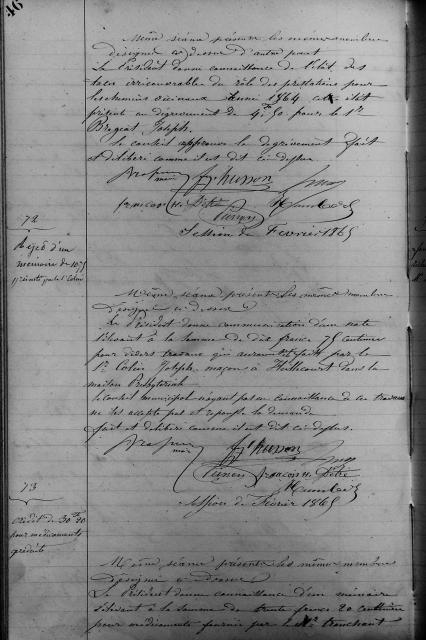 46
Même séance présents les mêmes membres
désignés ci dessus d'autre part
Le Président donne connaissance de l'état des
cotes irrecouvrables du rôle des prestations pour
les chemins vicinaux 1864 cet état
présent un dégrèvement de 4f 50 pour le Sr
Joseph.
Le conseil approuve le dégrèvement fait
et délibéré comme il est dit ci-dessus
fr husson
françois
Session de Février 1865
72
Rejet d'un
mémoire de 10f 75
présenté par le Sr Colin
Même séance présents les mêmes membres
Désignés ci dessus
Le Président donne communication d'une note
s'élevant à la somme de dix francs 75 centimes
pour divers travaux qui auraient été faits par le
Sr Colin Joseph, maçon à dans la
maison Presbytérale
Le conseil municipal n'ayant pas eu connaissance de ces travaux
ne les adopte pas et repousse la demande
fait et délibéré comme il est dit ci-dessus.
fr husson
françois
Session de Février 1865
73
crédit de 30f 20
pour médicaments
gratuits
Même séance présents les mêmes membres
Désignés ci dessus
Le Président donne connaissance d'un mémoire
s'élevant à la somme de trente francs 20 centimes
pour médicaments fournis par